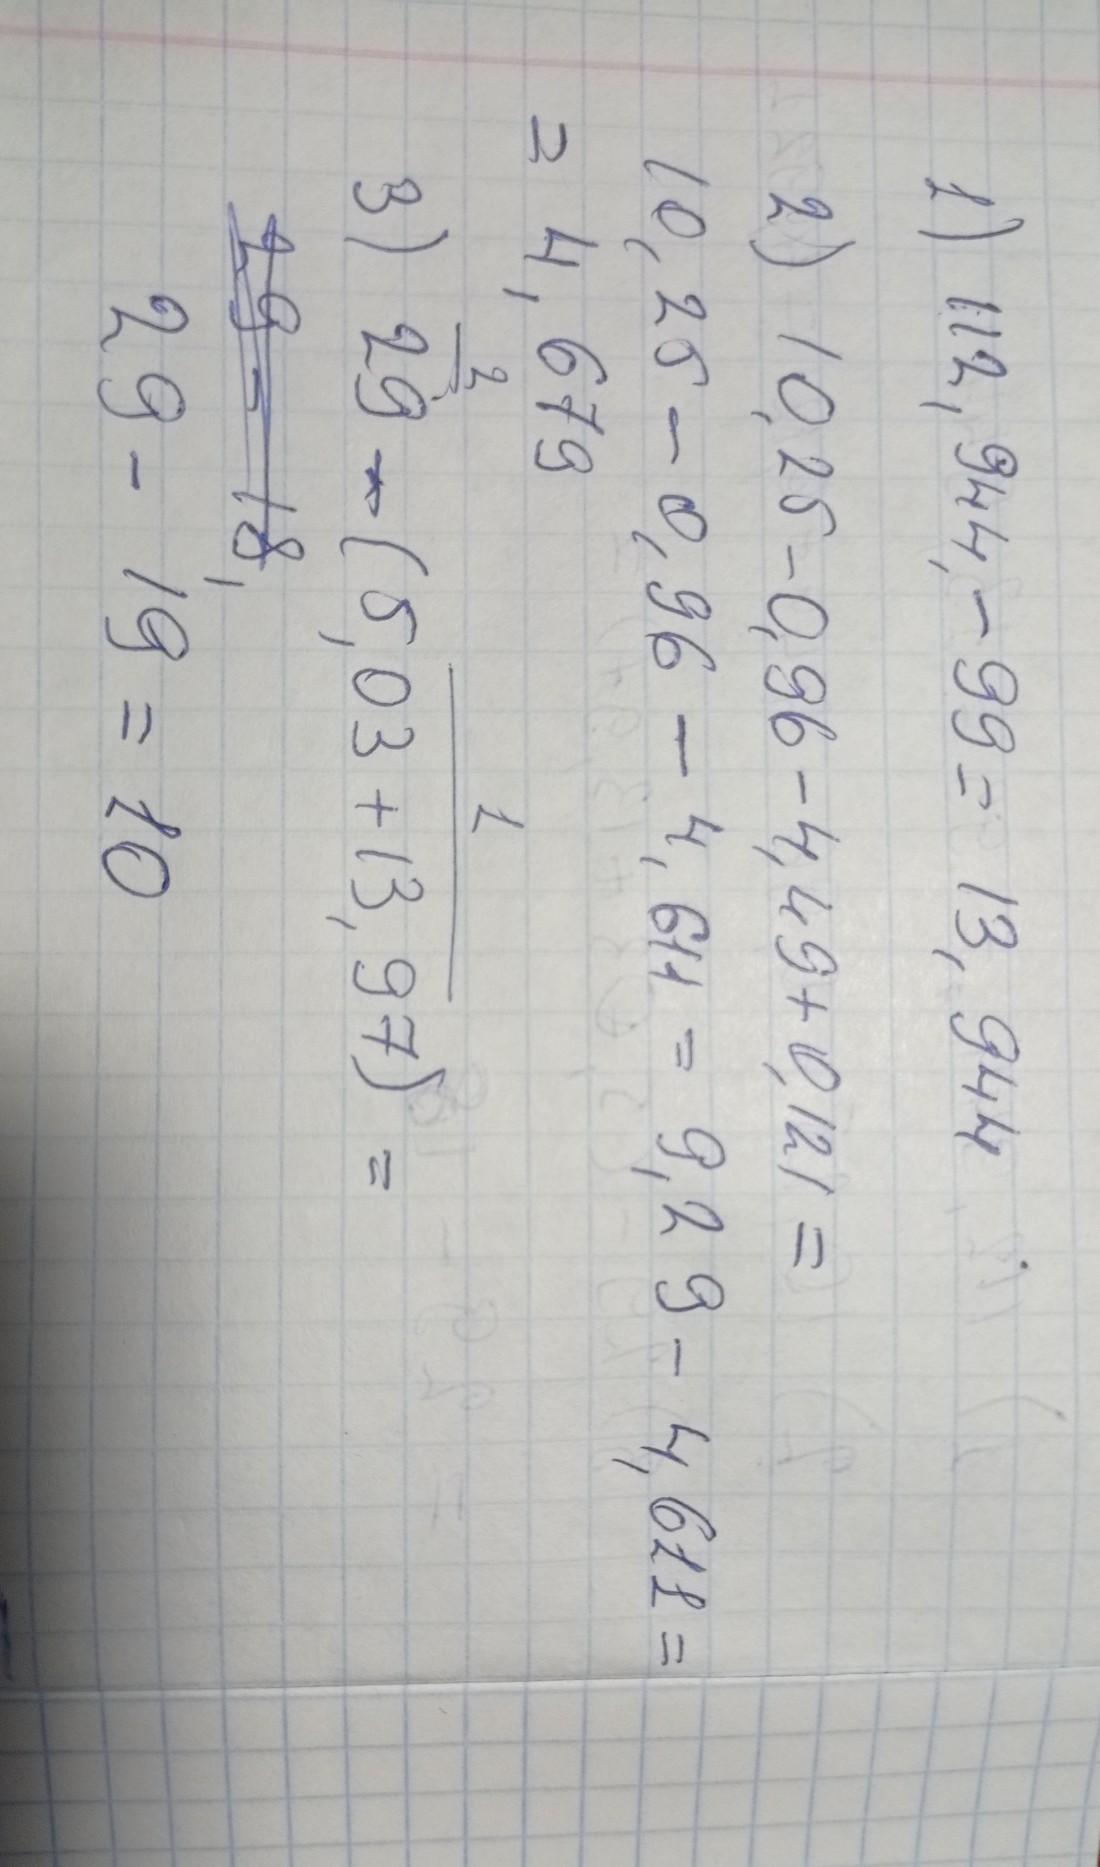 1) 112,944,-99= 13,944
2) 10,25-0,96-4,49+0,121=
10,25-0,96-4,611=9,29-4,611=
= 4,679
2 1
3) 29-(5,03+13,97)=
19-18,
29-19=10